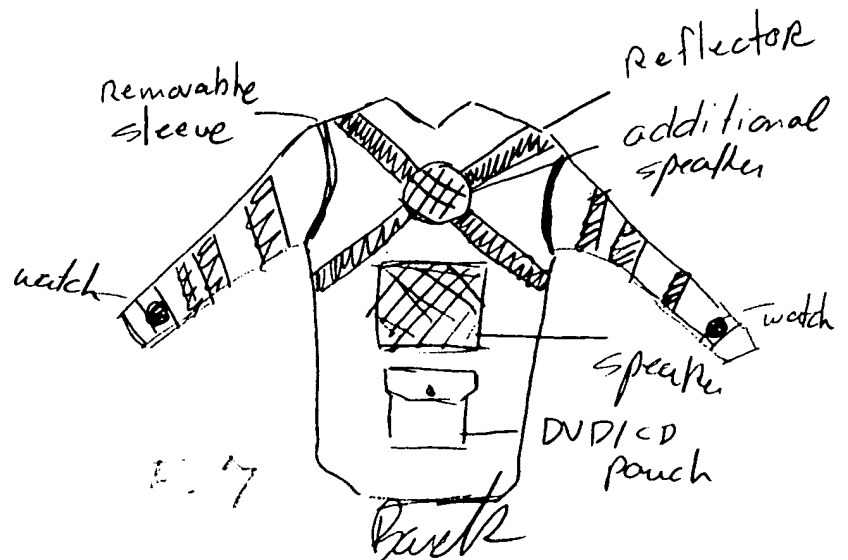 Removable
sleeve
Reflector
additional
speaker
watch
watch
speaker
DVD/CD
pouch
Back